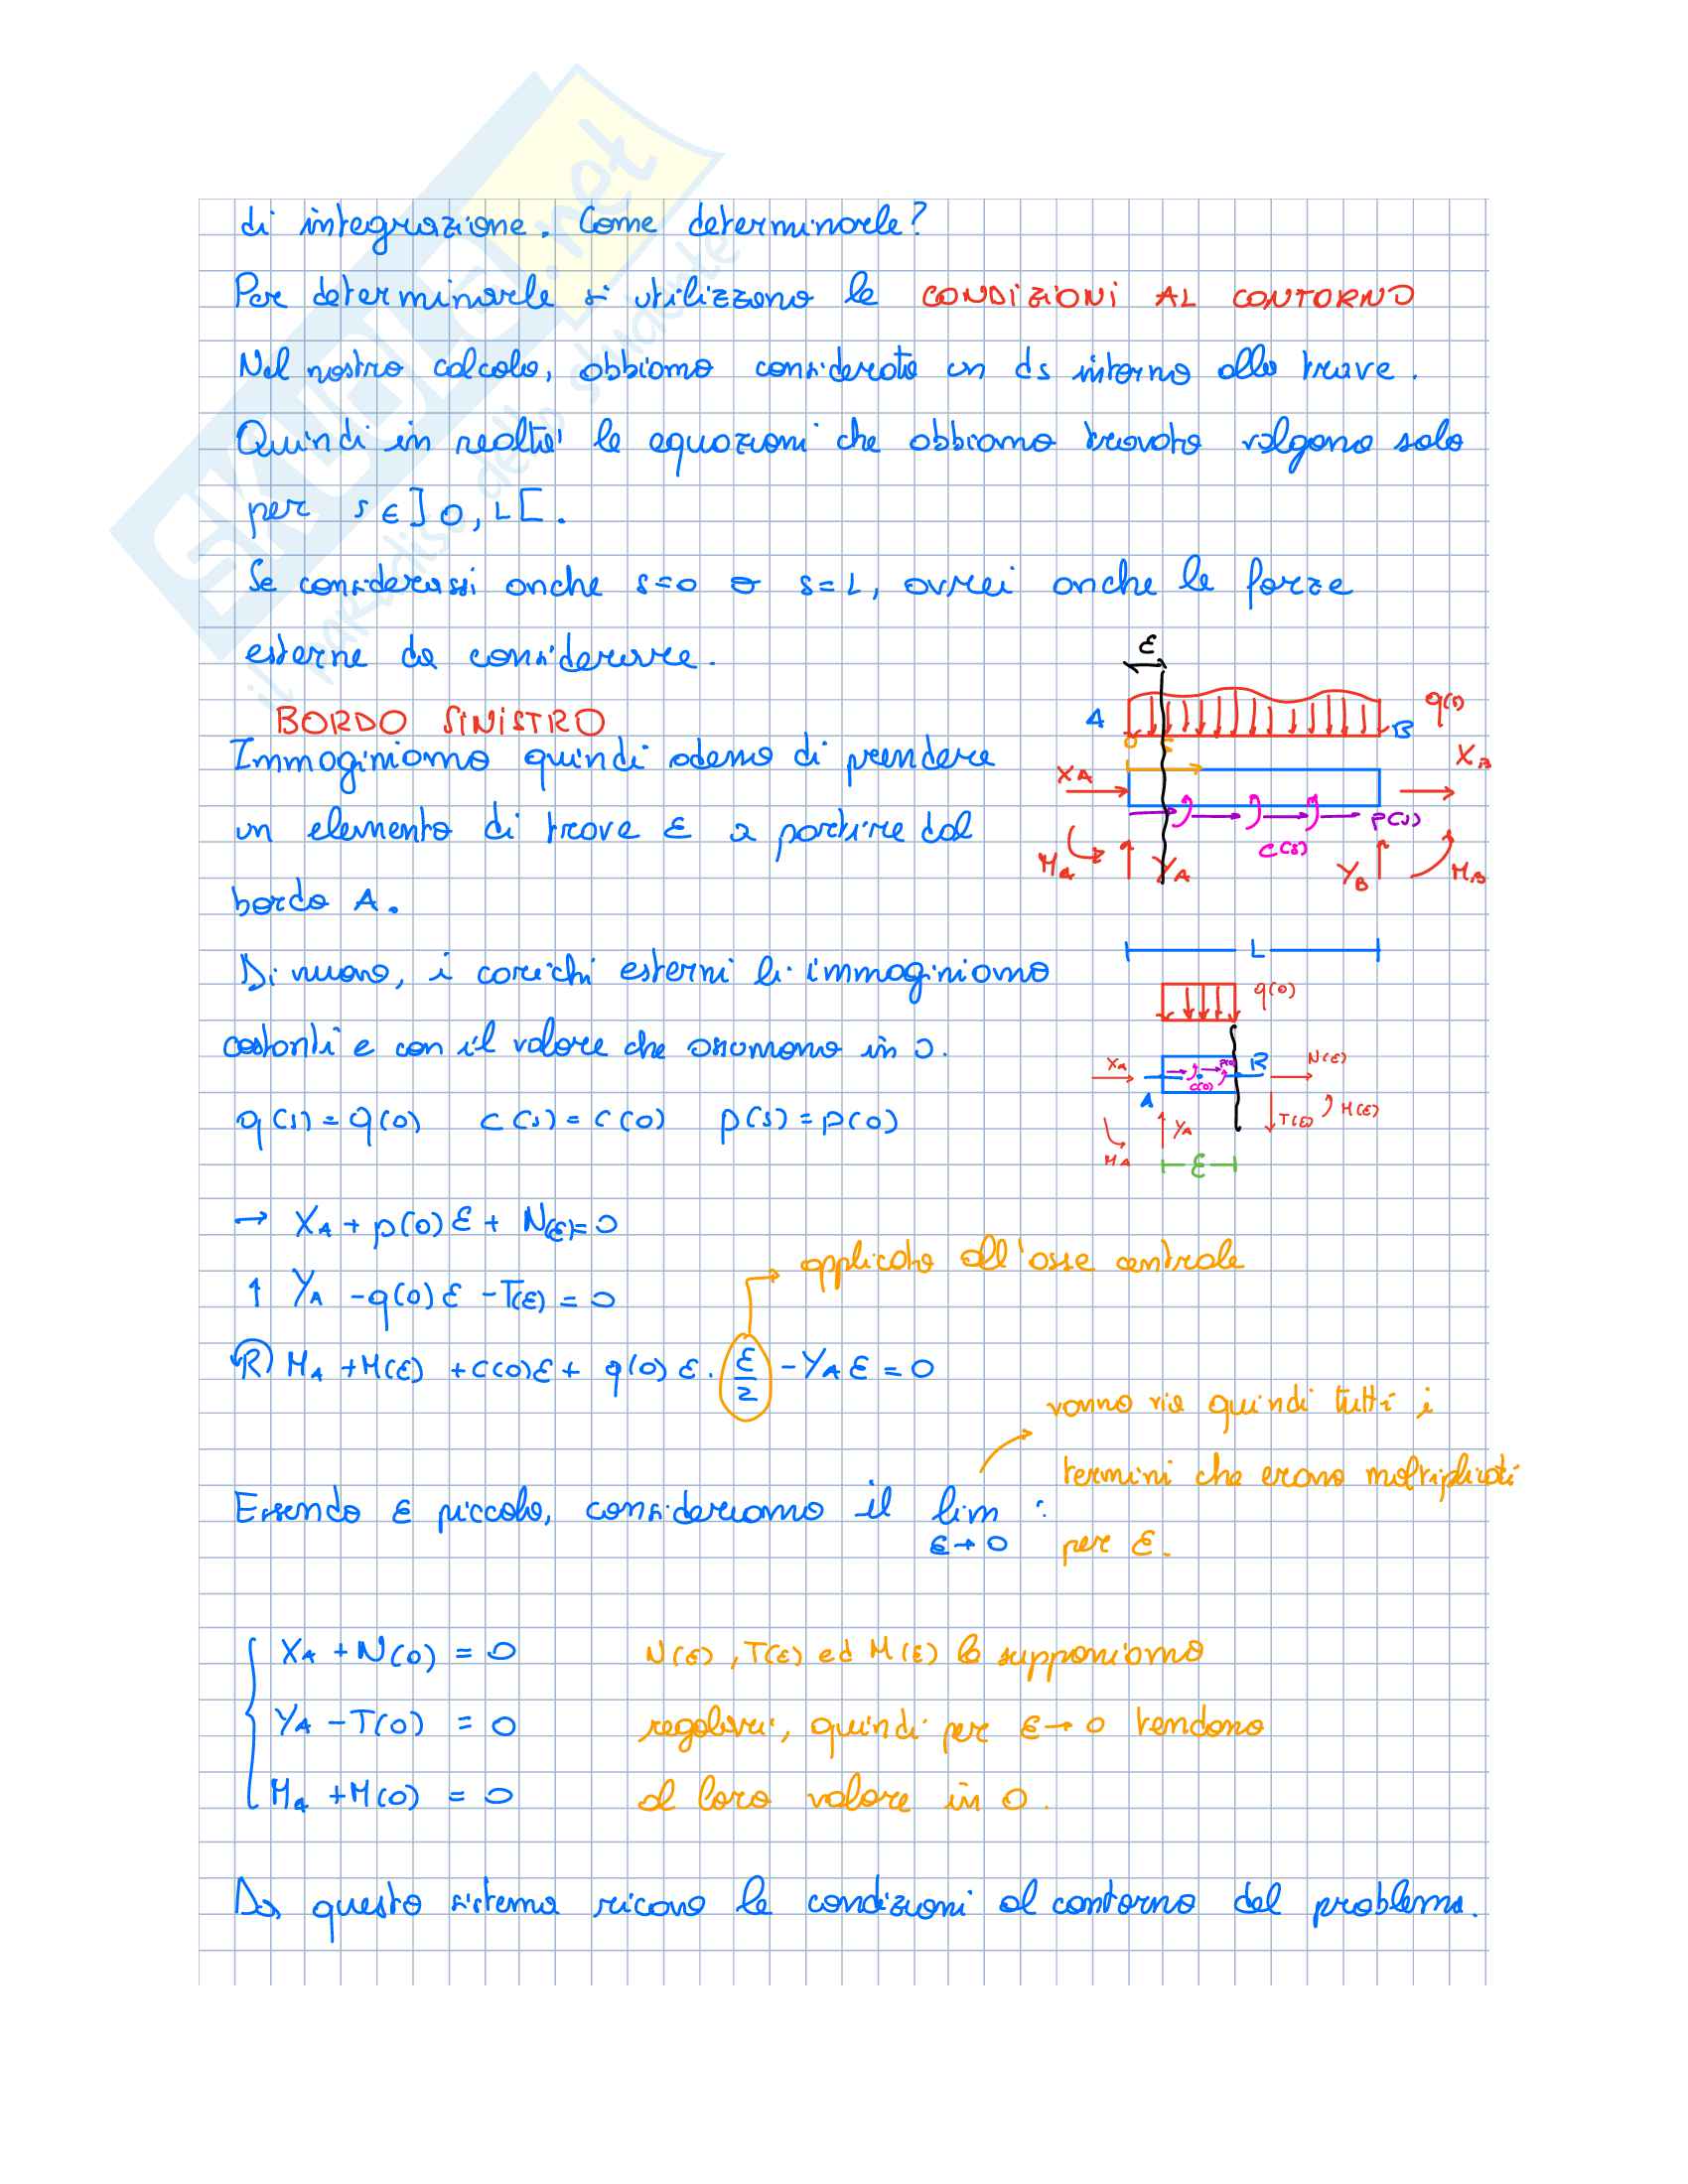 di integrazione. Come determinarle?
Per determinarle si utilizzano le CONDIZIONI AL CONTORNO
Nel nostro calcolo, abbiamo considerato un ds interno alla trave.
Quindi in realtà le equazioni che abbiamo trovato valgono solo
per s ∈ ]0, L[.
Se considerassi anche s=0 o s=L, avrei anche le forze
esterne da considerare.
BORDO SINISTRO
Immaginiamo quindi adesso di prendere
un elemento di trave ε a partire dal
bordo A.
Di nuovo, i carichi esterni li immaginiamo
costanti e con il valore che assumono in 0.
q(s) = q(0) c(s) = c(0) p(s) = p(0)
ε
A B q(s)
0 s
XA XB
p(s)
c(s)
MA YA YB MB
L
q(0)
XA p(0) c(0) R N(ε)
A T(ε) M(ε)
YA
MA
ε
→ XA + p(0)ε + N(ε) = 0
↑ YA - q(0)ε - T(ε) = 0
applicato all'asse centrale
R) MA + M(ε) + c(0)ε + q(0)ε · ε/2 - YA ε = 0
vanno via quindi tutti i
termini che erano moltiplicati
per ε.
Essendo ε piccolo, consideriamo il lim :
ε→0
XA + N(0) = 0
YA - T(0) = 0
MA + M(0) = 0
N(ε), T(ε) ed M(ε) le supponiamo
regolari, quindi per ε→0 tendono
al loro valore in 0.
Da questo sistema ricavo le condizioni al contorno del problema.
SKUOLA.net
il paradiso dello studente